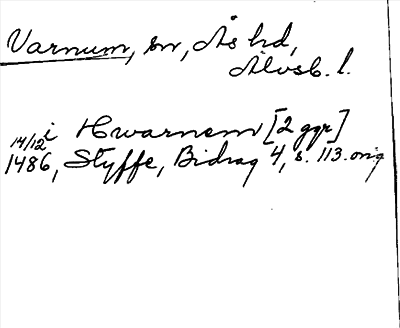 Varnum, sn, Ås hd,
Älvsb. l.
i Hwarnem [2 ggr]
14/12 1486, Styffe, Bidrag 4, s. 113. orig